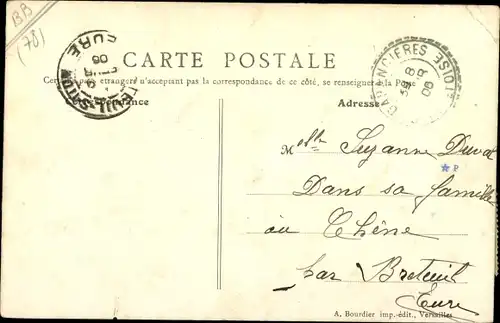 BB
(78)
CARTE POSTALE
Certains pays étrangers n'acceptant pas la correspondance de ce côté, se renseigner à la Poste
Correspondance
Adresse
GARANCIÈRES
OISE
8
06
EURE
06
M elle Suzanne Duval
P
Dans sa famille
au Chêne
par Breteuil
Eure
A. Bourdier imp.-édit., Versailles